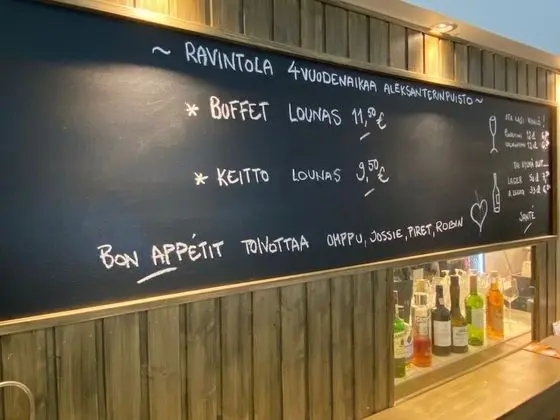 ~ RAVINTOLA 4VUODENAIKAA ALEKSANTERINPUISTO ~
* BUFFET LOUNAS 11,50 €
* KEITTO LOUNAS 9,50 €
BON APPÉTIT TOIVOTTAA OMPPU, JOSSIE, PIRET, ROBIN
LASI
12 cl
12 cl
TAI
LAGER
SANTÉ